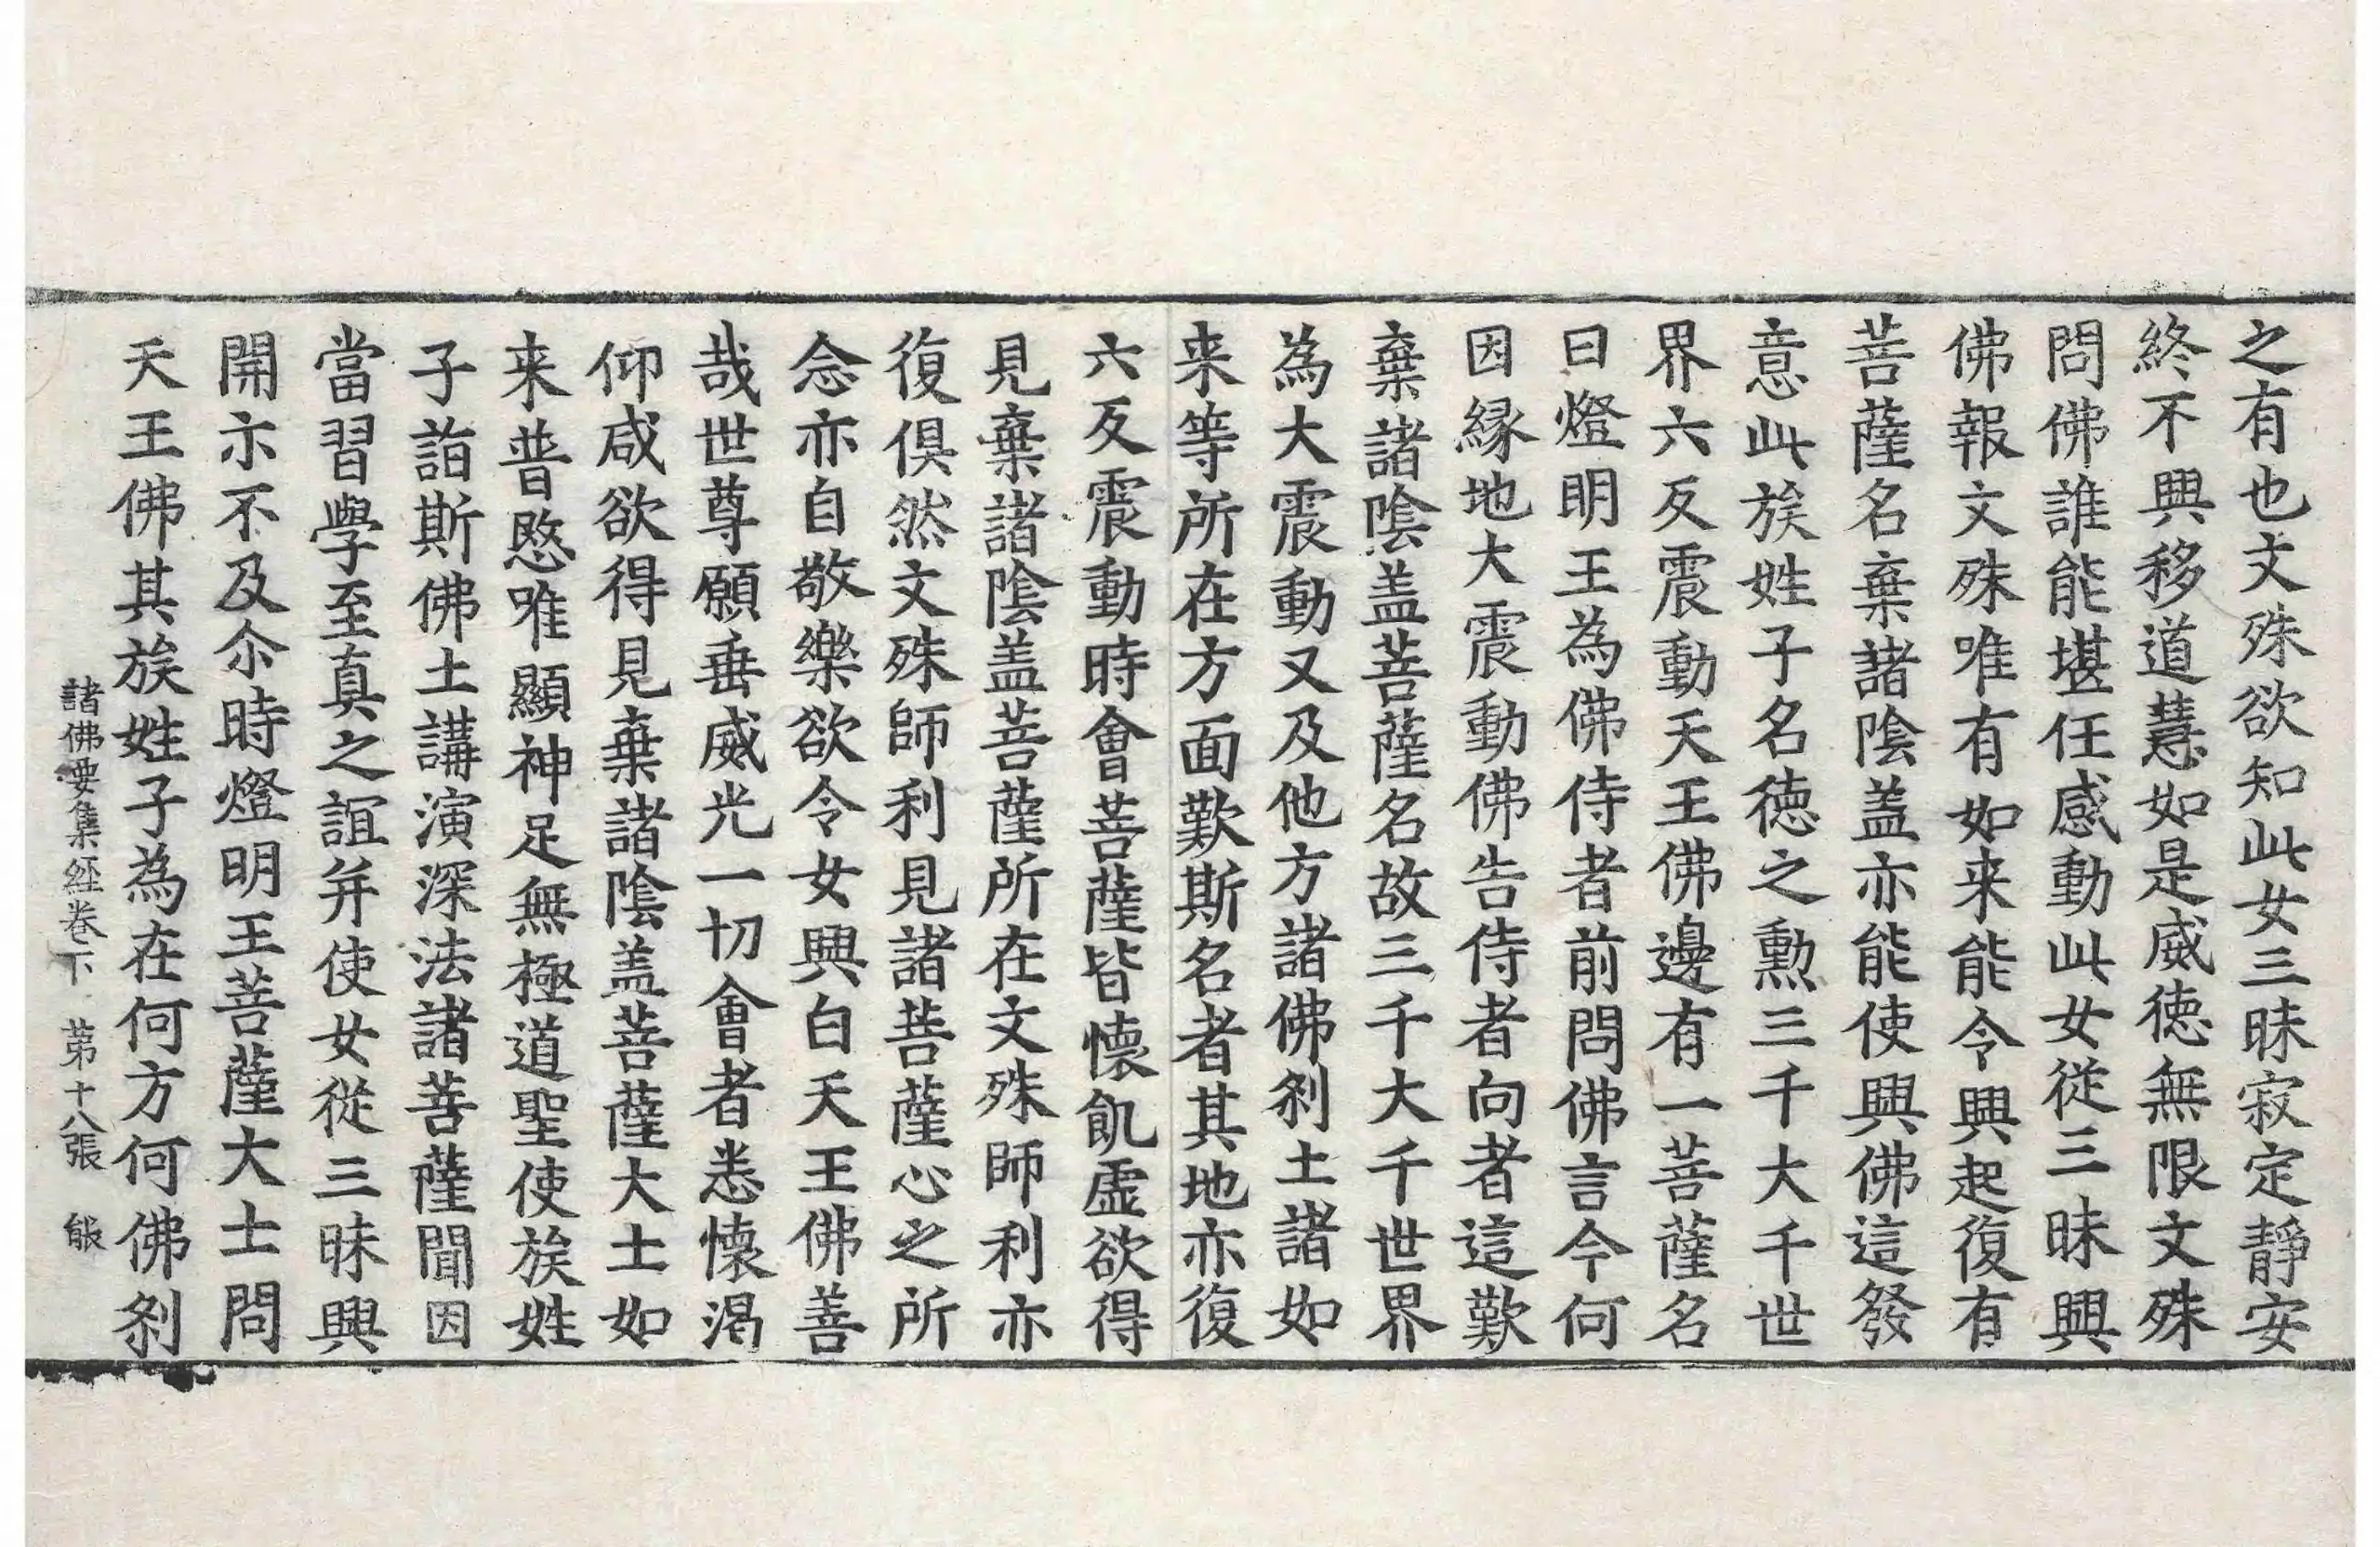 之有也文殊欲知此女三昧寂定靜安
終不興移道慧如是威德無限文殊
問佛誰能堪任感動此女從三昧興
佛報文殊唯有如来能令興起復有
菩薩名棄諸陰盖亦能使興佛這發
意此族姓子名德之勲三千大千世
界六反震動天王佛邊有一菩薩名
曰燈明王為佛侍者前問佛言今何
因縁地大震動佛告侍者向者這歎
棄諸陰盖菩薩名故三千大千世界
為大震動又及他方諸佛刹土諸如
来等所在方面歎斯名者其地亦復
六反震動時會菩薩皆懷飢虛欲得
見棄諸陰盖菩薩所在文殊師利亦
復俱然文殊師利見諸菩薩心之所
念亦自敬樂欲令女興白天王佛善
哉世尊願垂威光一切會者悉懷渴
仰咸欲得見棄諸陰盖菩薩大士如
来普愍唯顯神足無極道聖使族姓
子詣斯佛土講演深法諸菩薩聞因
當習學至真之誼并使女從三昧興
開示不及尒時燈明王菩薩大士問
天王佛其族姓子為在何方何佛刹
諸佛要集經卷下 苐十八張 能